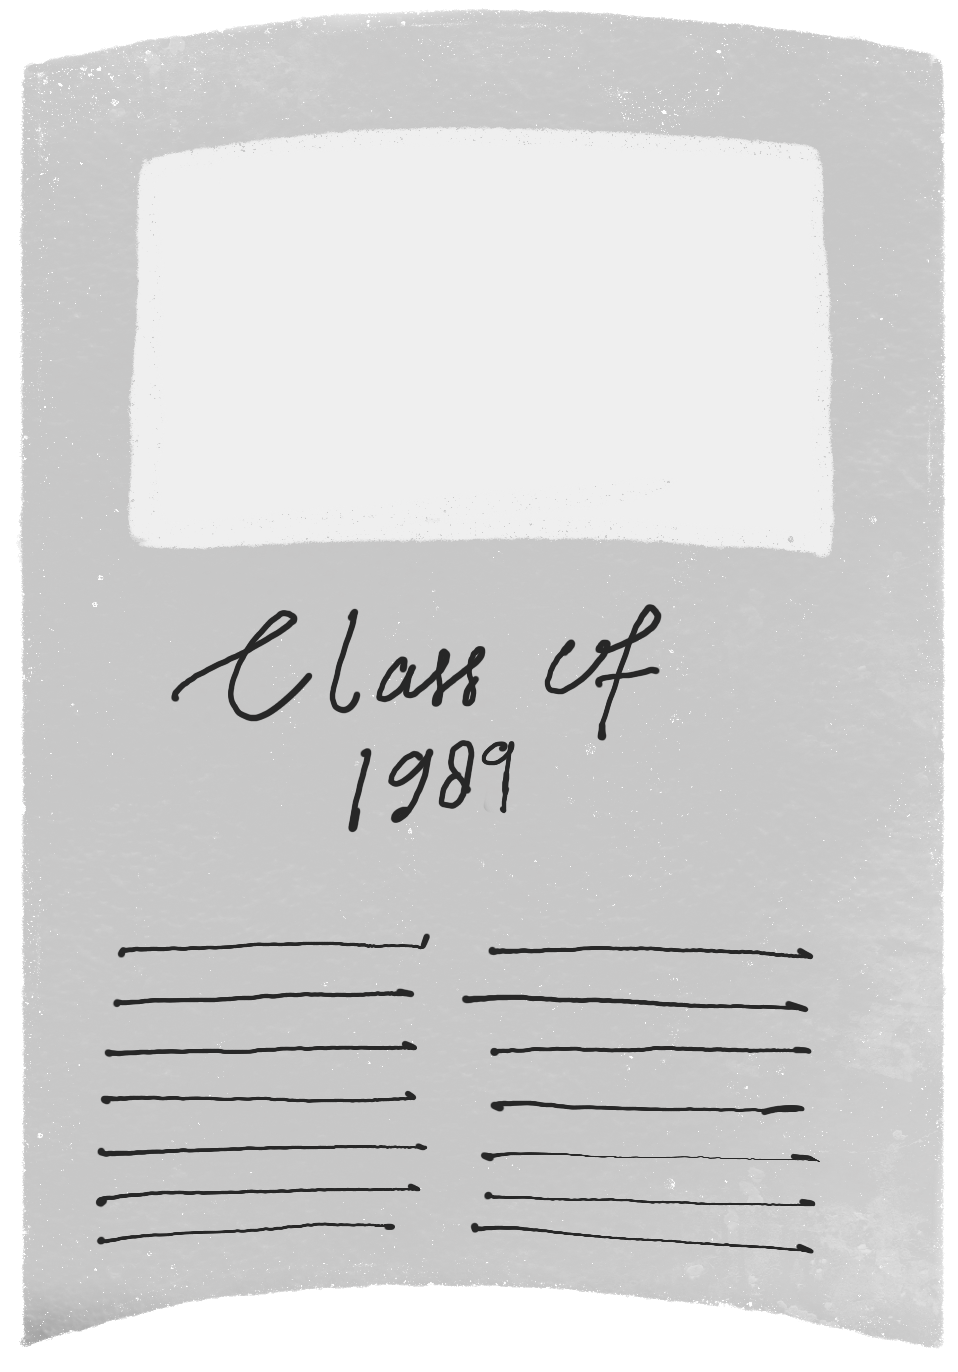 Class of
1989